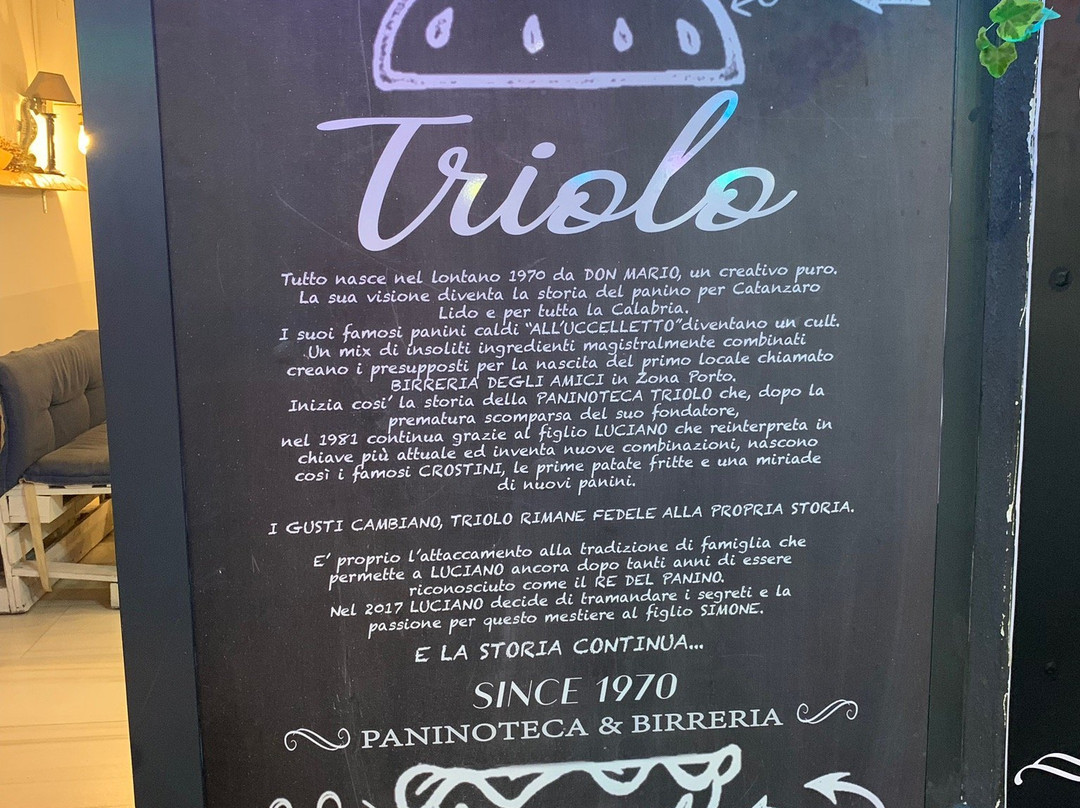 Triolo
Tutto nasce nel lontano 1970 da DON MARIO, un creativo puro.
La sua visione diventa la storia del panino per Catanzaro
Lido e per tutta la Calabria.
I suoi famosi panini caldi "ALL'UCCELLETTO"diventano un cult.
Un mix di insoliti ingredienti magistralmente combinati
creano i presupposti per la nascita del primo locale chiamato
BIRRERIA DEGLI AMICI in Zona Porto.
Inizia cosi' la storia della PANINOTECA TRIOLO che, dopo la
prematura scomparsa del suo fondatore,
nel 1981 continua grazie al figlio LUCIANO che reinterpreta in
chiave più attuale ed inventa nuove combinazioni, nascono
così i famosi CROSTINI, le prime patate fritte e una miriade
di nuovi panini.
I GUSTI CAMBIANO, TRIOLO RIMANE FEDELE ALLA PROPRIA STORIA.
E' proprio l'attaccamento alla tradizione di famiglia che
permette a LUCIANO ancora dopo tanti anni di essere
riconosciuto come il RE DEL PANINO.
Nel 2017 LUCIANO decide di tramandare i segreti e la
passione per questo mestiere al figlio SIMONE.
E LA STORIA CONTINUA...
SINCE 1970
PANINOTECA & BIRRERIA